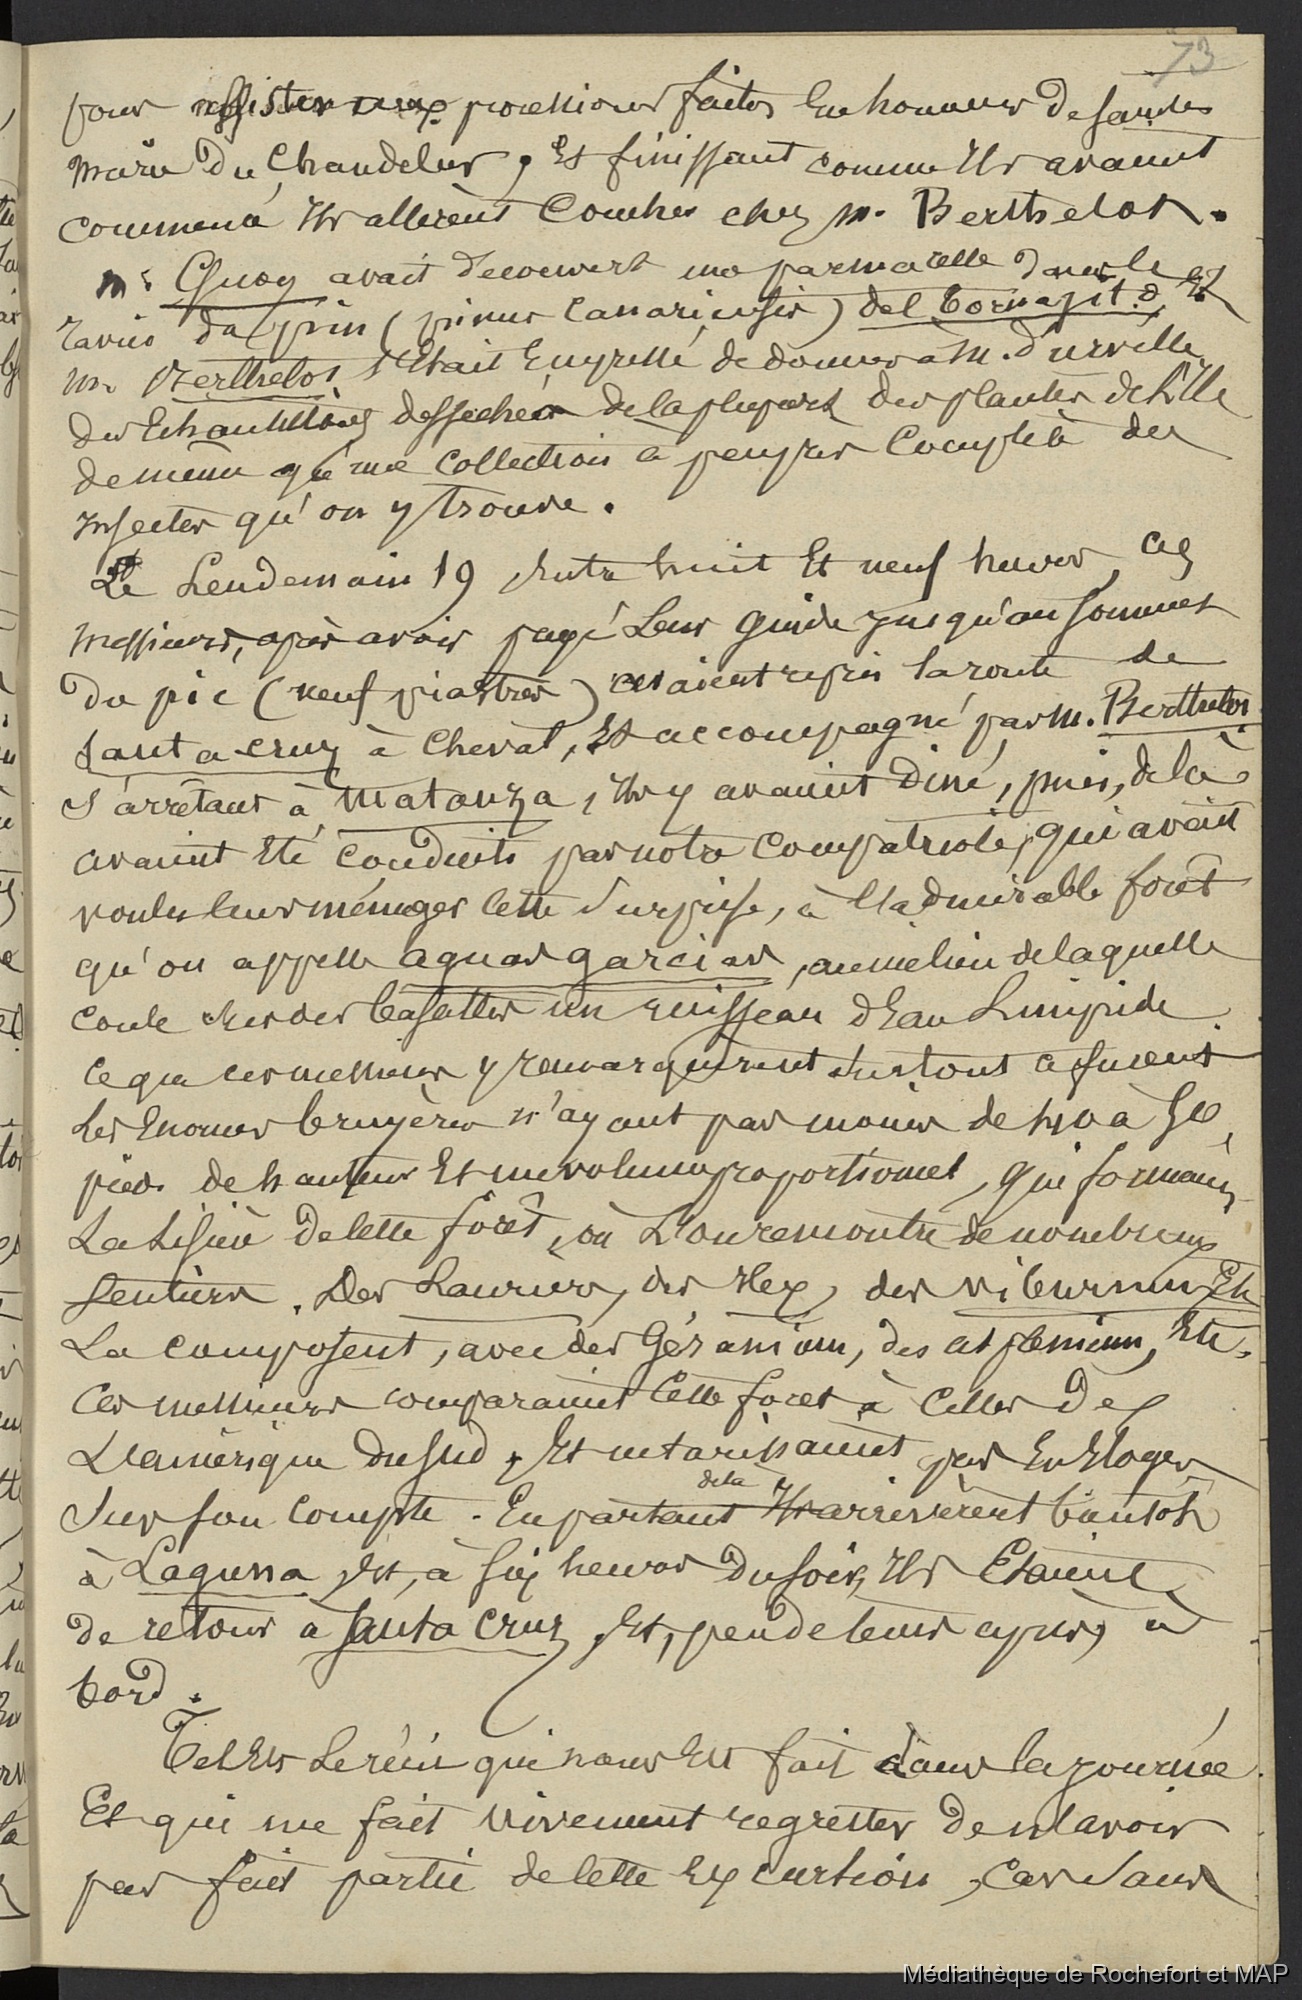 73
pour assister aux processions faites En honneur de Sainte
marie du Chandeleur, Et finissant comme Ils avaient
commencé Ils allèrent Coucher chez m. Berthelot.
m. Quoy avait découvert une parmacelle dans le
ravin du pin (pinus Canariensis) del Dornajito, Et
m. Berthelot s'était Empressé de donner à M. d'urville
des Echantillons desséchés de la plupart des plantes de L'Ile
de même qu'une collection à peu près Complète des
Insectes qu'on y trouve.
Le Lendemain 19 Entre huit Et neuf heures, ces
messieurs, après avoir payé Leur guide jusqu'au sommet
du pic (neuf piastres) avaient repris la route de
Santa cruz à Cheval, Et accompagné par M. Berthelot
s'arrêtant à Matanza, Ils y avaient diné, puis, de là
avaient Eté conduits par notre Compatriote, qui avait
voulu leur ménager Cette Surprise, à L'admirable forêt
qu'on appelle aguas garcias, au milieu de laquelle
coule sur des basaltes un ruisseau d'Eau Limpide
Ce que ces messieurs y remarquèrent surtout ce furent
Les Enormes bruyères n'ayant pas moins de à
pieds de hauteur Et un volume proportionnel, qui formaient
La Lisière de Cette forêt, où L'on rencontre de nombreux
Sentiers. Des Lauriers, des Ilex, des viburnum Etc
La composent, avec des Géranium, des asplenium, Etc.
Ces messieurs comparaient Cette foret à Celles de
L'amérique du Sud, Et ne tarissaient pas En Eloges
Sur son compte. En partant de là Ils arrivèrent bientôt
à Laguna Et, à six heures du soir, Ils Etaient
de retour à Santa Cruz, Et, peu de tems après, à
bord.
Tel Est Le récit qui nous Est fait dans la journée
Et qui me fait vivement regretter de n'avoir
pas fait partie de Cette Excursion, Car sans
Médiathèque de Rochefort et MAP